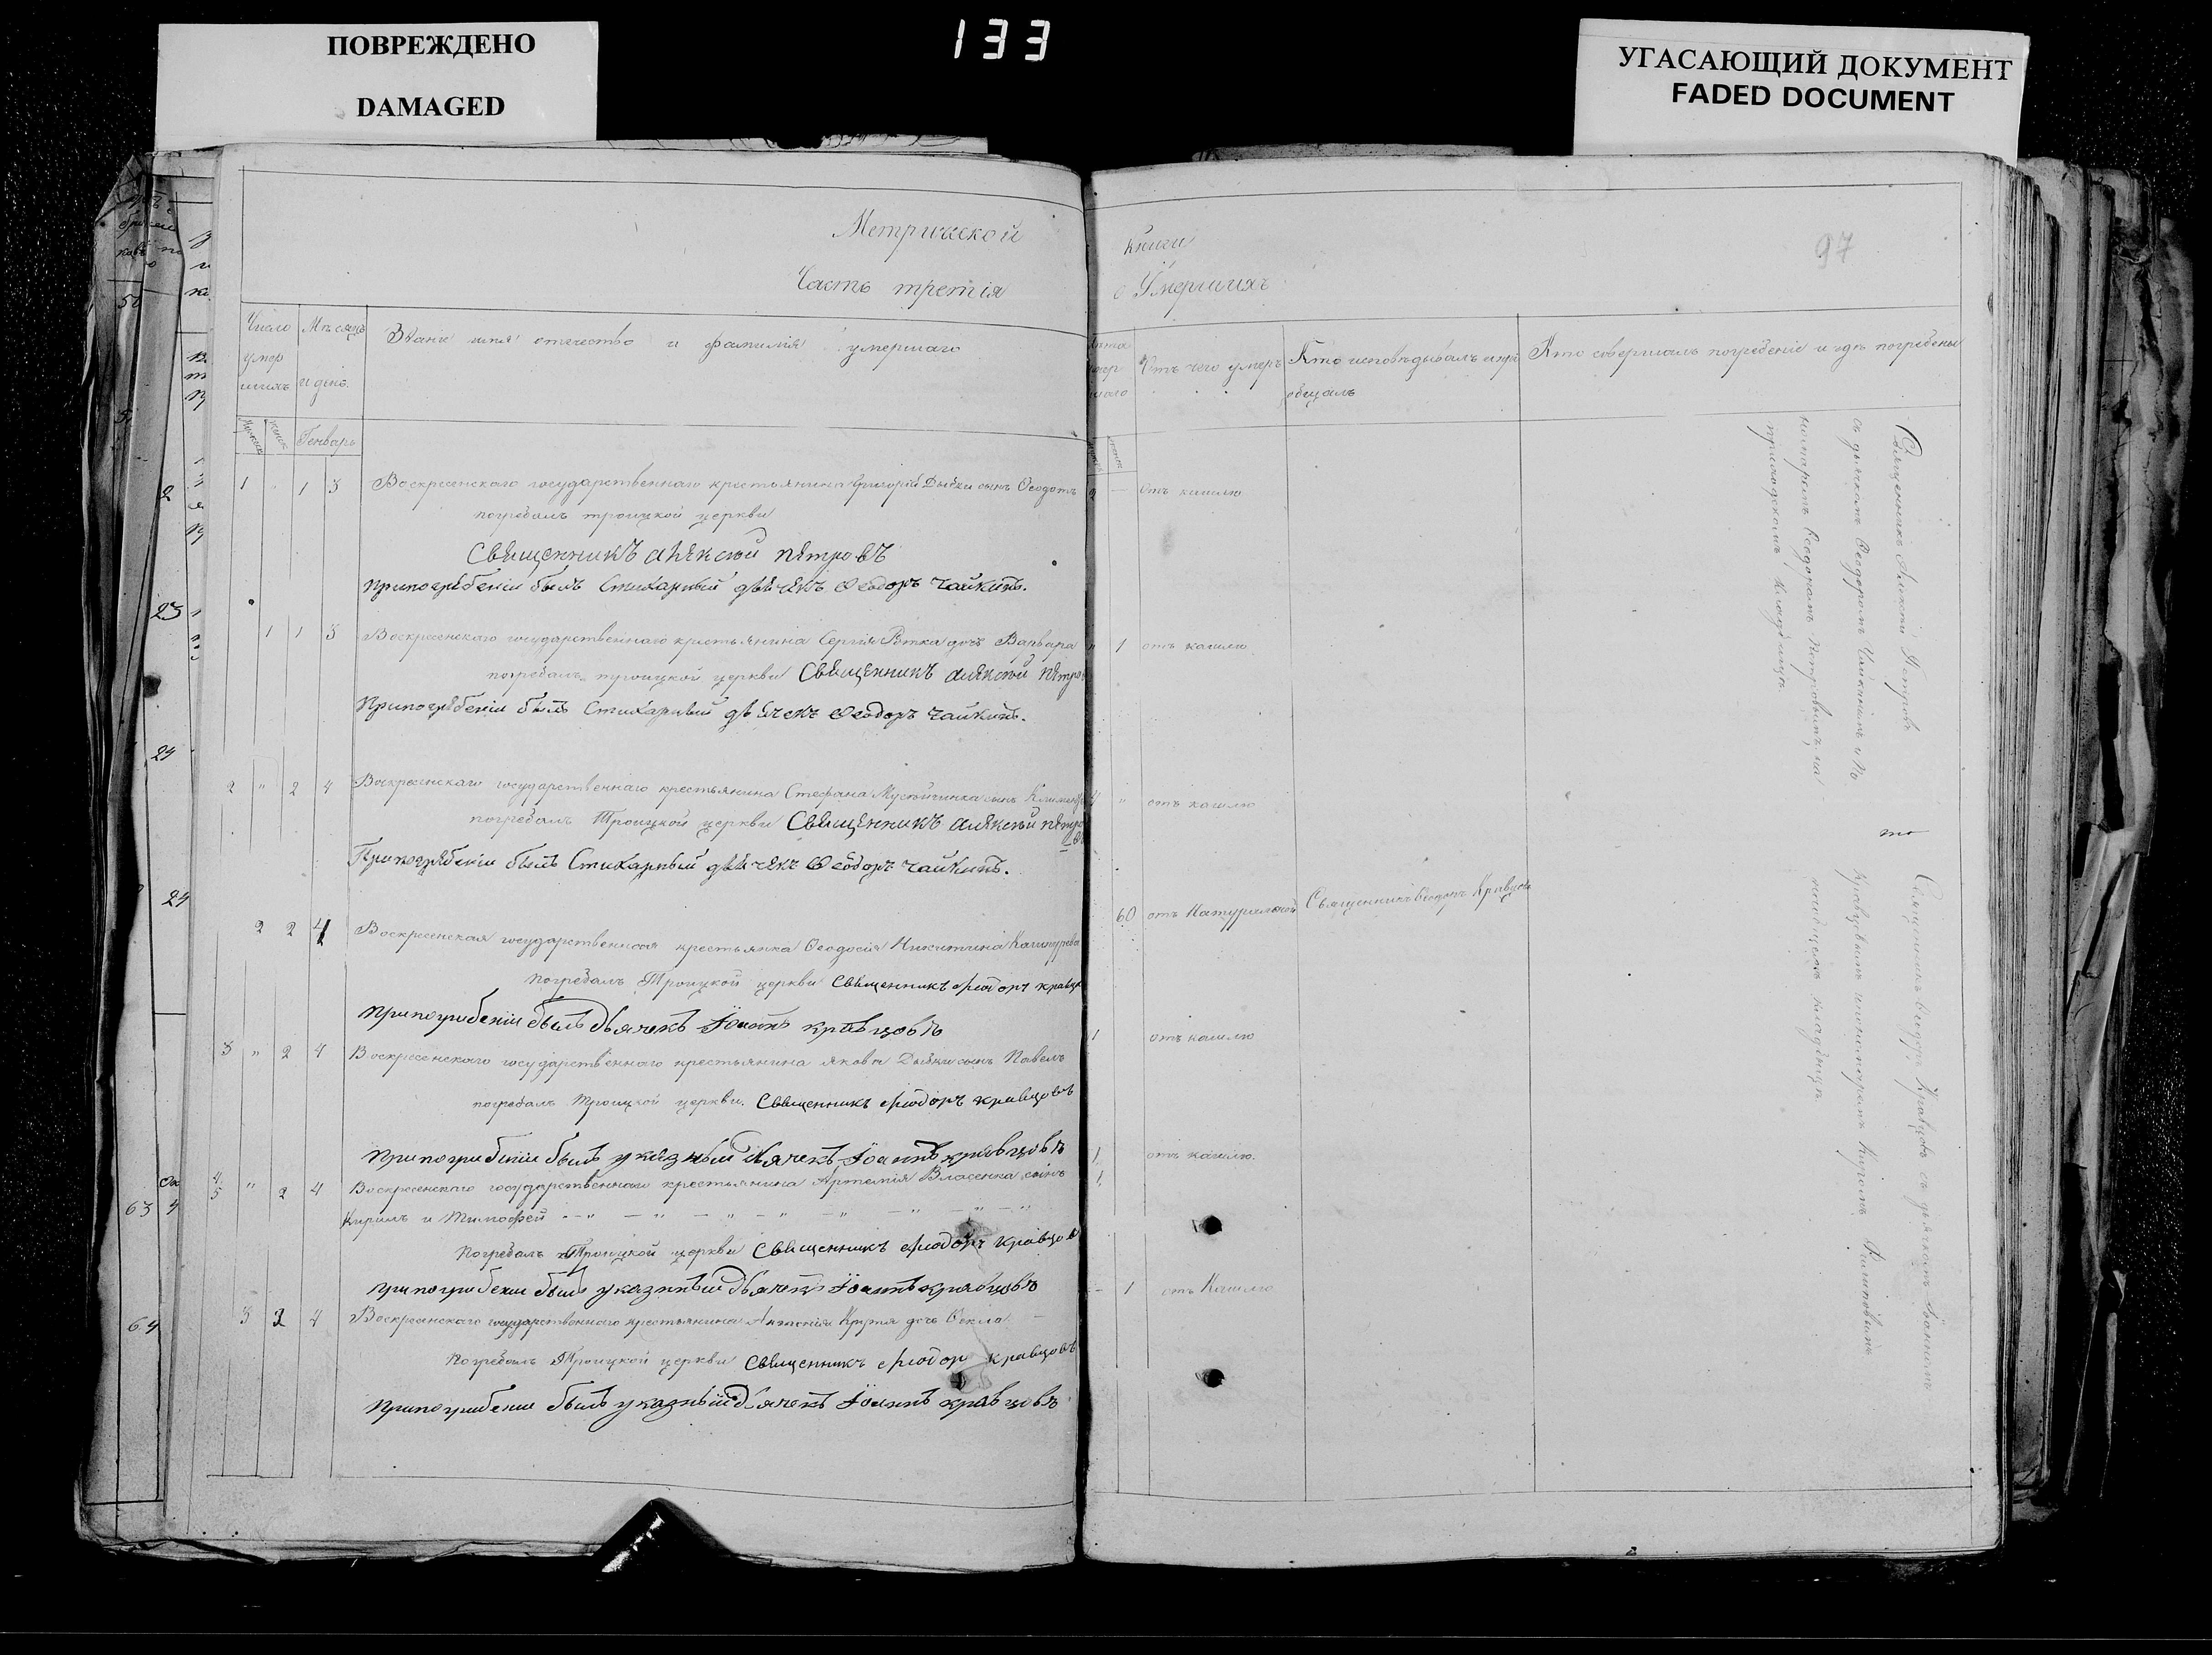 ПОВРЕЖДЕНО
DAMAGED
133
УГАСАЮЩИЙ ДОКУМЕНТ
FADED DOCUMENT
Метрической книги
97
Часть третія о Умершихъ
Число умершихъ
Мѣсяцъ и день
Званіе имя отечество и фамилія умершаго
Отъ чего умеръ
Кто исповѣдывалъ и пріобщалъ
Кто совершалъ погребеніе и гдѣ погребены
Генварь
1 1 3 Воскресенскаго государственнаго крестьянина Григорій Дыбки сынъ Ѳеодотъ 2 — отъ кашлю
погребалъ троицкой церкви
Священникъ Алексѣй Петровъ
При погребеніи былъ Стихарный дьячекъ Ѳеодоръ Чайкинъ.
1 1 3 Воскресенскаго государственнаго крестьянина Сергія дочь Варвара 1 отъ кашлю
погребалъ троицкой церкви Священникъ Алексѣй Петро
При погребеніи былъ Стихарный дьячекъ Ѳеодоръ Чайкинъ.
2 " 2 4 Воскресенскаго государственнаго крестьянина Стефана сынъ 4 " отъ кашлю
погребалъ Троицкой церкви Священникъ Алексѣй Петро
При погребеніи былъ Стихарный дьячекъ Ѳеодоръ Чайкинъ.
2 2 4 Воскресенская государственная крестьянка Ѳеодосія Никитина 60 отъ Натуральной Священникъ Ѳеодоръ Кравцовъ
погребалъ Троицкой церкви Священникъ Фіодоръ Кравц
При погрибеніи былъ дьячекъ Іоаннъ Кравцовъ
3 " 2 4 Воскресенскаго государственнаго крестьянина Якова Дыбки сынъ Павелъ 1 отъ кашлю
погребалъ Троицкой церкви. Священникъ Фіодоръ Кравцовъ
При погрибеніи былъ указный дьячекъ Іоаннъ Кравцовъ
4 5 " 2 4 Воскресенскаго государственнаго крестьянина Артемія Власенка сынъ 1 1 отъ кашлю.
Кирилъ и Тимофей
Погребалъ Троицкой церкви Священникъ Фіодоръ Кравцов
При погрибении былъ указный дьячекъ Іоаннъ Кравцовъ
3 2 4 Воскресенскаго государственнаго крестьянина Антонія дочь Ѳекла — 1 отъ Кашлю
Погребалъ Троицкой церкви Священникъ Фіодор Кравцовъ
При погрибении былъ указный дьячекъ Іоаннъ Кравцовъ
Священникъ Алексѣй Петровъ
съ дьячкомъ Ѳеодоромъ Чайкинымъ и По
номаремъ Ѳеодоромъ Петровымъ на
приходскомъ кладбищѣ
то
Священникъ Ѳеодоръ Кравцовъ съ дьячкомъ Іоанномъ
Кравцовымъ и пономаремъ
кладбищѣ.
2
23
24
24
63
64